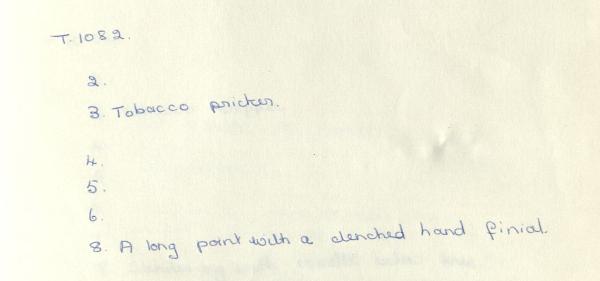 T.1082.
2.
3. Tobacco pricker.
4.
5.
6.
8. A long point with a clenched hand finial.